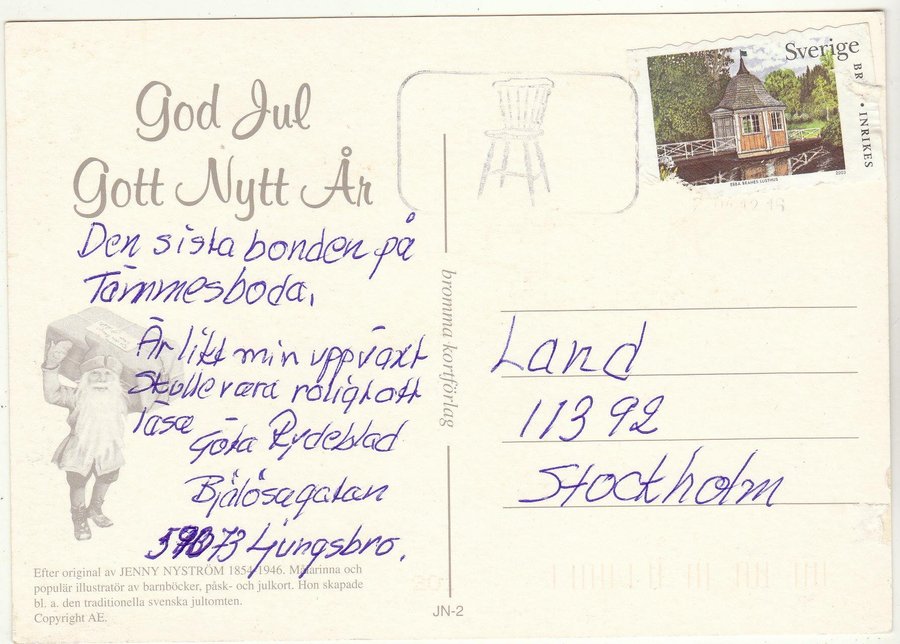 God Jul
Gott Nytt År
Den sista bonden på
Tämmesboda.
Är likt min uppväxt
Skulle vara roligt att
läsa
Göta Rydeblad
Bjälösagatan
59073 Ljungsbro.
Efter original av JENNY NYSTRÖM 1854-1946. Målarinna och
populär illustratör av barnböcker, påsk- och julkort. Hon skapade
bl. a. den traditionella svenska jultomten.
Copyright AE.
bromma kortförlag
JN-2
Sverige
BR • INRIKES
EBBA BRAHES LUSTHUS
2003
Land
113 92
Stockholm